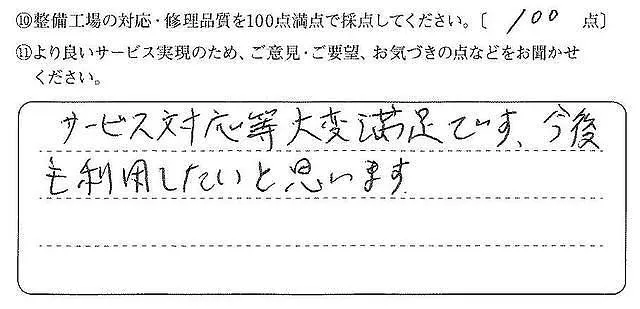 ⑩整備工場の対応・修理品質を100点満点で採点してください。〔 100 点〕
⑪より良いサービス実現のため、ご意見・ご要望、お気づきの点などをお聞かせ
ください。
サービス対応等大変満足です、今後
も利用したいと思います